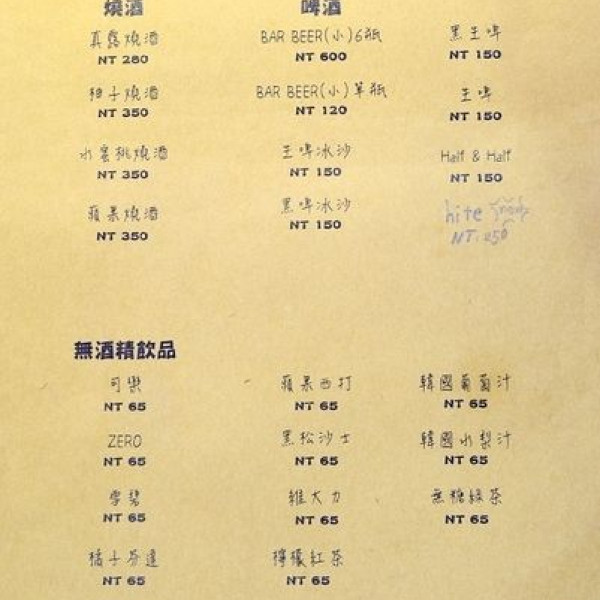 燒酒
真露燒酒
NT 280
柚子燒酒
NT 350
水蜜桃燒酒
NT 350
蘋果燒酒
NT 350
啤酒
BAR BEER(小)6瓶
NT 600
BAR BEER(小)單瓶
NT 120
生啤冰沙
NT 150
黑啤冰沙
NT 150
黑生啤
NT 150
生啤
NT 150
Half & Half
NT 150
hite
NT. 250
無酒精飲品
可樂
NT 65
ZERO
NT 65
雪碧
NT 65
橘子芬達
NT 65
蘋果西打
NT 65
黑松沙士
NT 65
維大力
NT 65
檸檬紅茶
NT 65
韓國葡萄汁
NT 65
韓國水梨汁
NT 65
無糖綠茶
NT 65